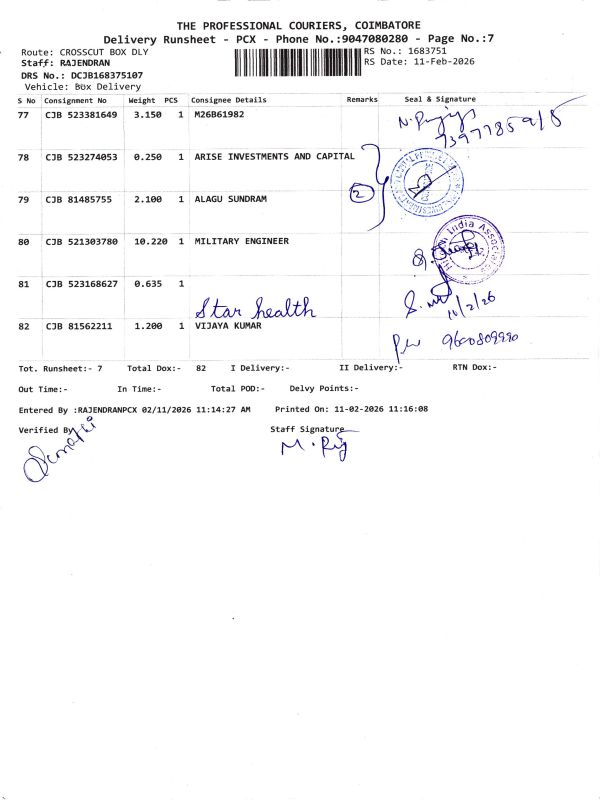 THE PROFESSIONAL COURIERS, COIMBATORE
Delivery Runsheet - PCX - Phone No.:9047080280 - Page No.:7
Route: CROSSCUT BOX DLY
RS No.: 1683751
Staff: RAJENDRAN
RS Date: 11-Feb-2026
DRS No.: DCJB168375107
Vehicle: Box Delivery
S No Consignment No Weight PCS Consignee Details Remarks Seal & Signature
77 CJB 523381649 3.150 1 M26B61982
78 CJB 523274053 0.250 1 ARISE INVESTMENTS AND CAPITAL
2
79 CJB 81485755 2.100 1 ALAGU SUNDRAM
80 CJB 521303780 10.220 1 MILITARY ENGINEER
India Associa
81 CJB 523168627 0.635 1
Star health
10/2/26
82 CJB 81562211 1.200 1 VIJAYA KUMAR
Tot. Runsheet:- 7 Total Dox:- 82 I Delivery:- II Delivery:- RTN Dox:-
Out Time:- In Time:- Total POD:- Delvy Points:-
Entered By :RAJENDRANPCX 02/11/2026 11:14:27 AM Printed On: 11-02-2026 11:16:08
Verified By
Staff Signature